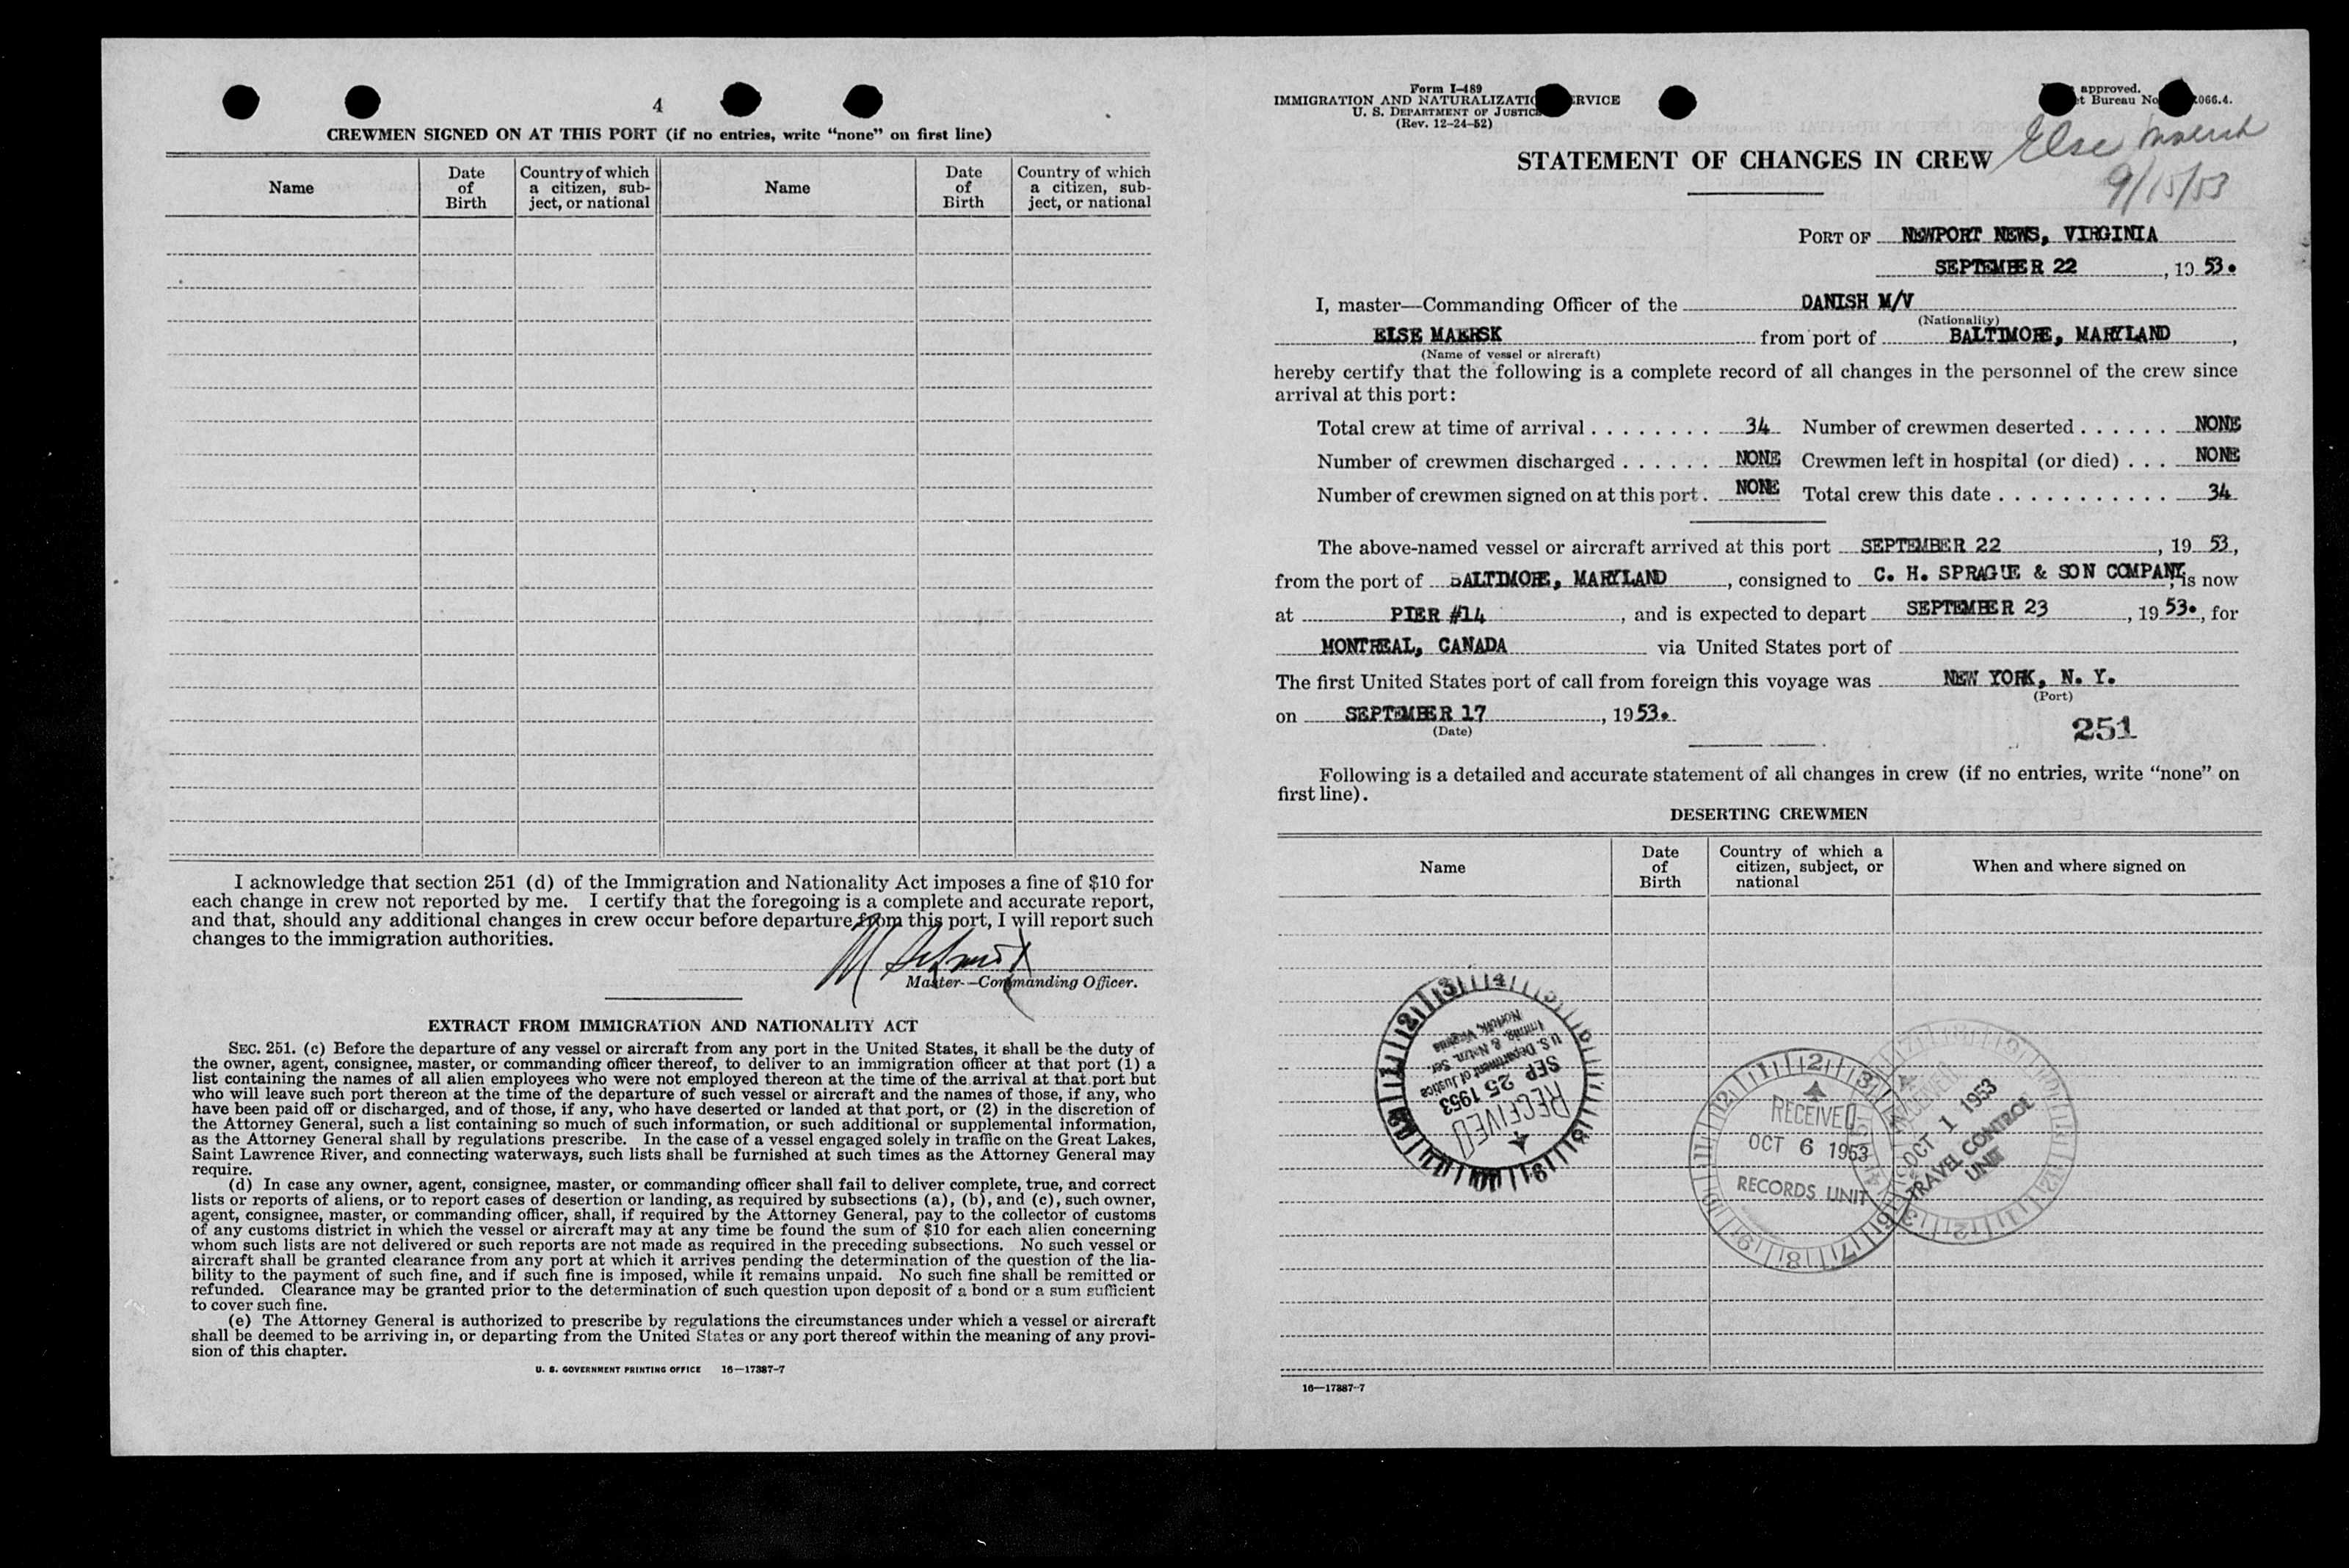 4
CREWMEN SIGNED ON AT THIS PORT (if no entries, write “none” on first line)
Name
Date of Birth
Country of which a citizen, subject, or national
Name
Date of Birth
Country of which a citizen, subject, or national
I acknowledge that section 251 (d) of the Immigration and Nationality Act imposes a fine of $10 for
each change in crew not reported by me. I certify that the foregoing is a complete and accurate report,
and that, should any additional changes in crew occur before departure from this port, I will report such
changes to the immigration authorities.
Master—Commanding Officer.
EXTRACT FROM IMMIGRATION AND NATIONALITY ACT
SEC. 251. (c) Before the departure of any vessel or aircraft from any port in the United States, it shall be the duty of
the owner, agent, consignee, master, or commanding officer thereof, to deliver to an immigration officer at that port (1) a
list containing the names of all alien employees who were not employed thereon at the time of the arrival at that port but
who will leave such port thereon at the time of the departure of such vessel or aircraft and the names of those, if any, who
have been paid off or discharged, and of those, if any, who have deserted or landed at that port, or (2) in the discretion of
the Attorney General, such a list containing so much of such information, or such additional or supplemental information,
as the Attorney General shall by regulations prescribe. In the case of a vessel engaged solely in traffic on the Great Lakes,
Saint Lawrence River, and connecting waterways, such lists shall be furnished at such times as the Attorney General may
require.
(d) In case any owner, agent, consignee, master, or commanding officer shall fail to deliver complete, true, and correct
lists or reports of aliens, or to report cases of desertion or landing, as required by subsections (a), (b), and (c), such owner,
agent, consignee, master, or commanding officer, shall, if required by the Attorney General, pay to the collector of customs
of any customs district in which the vessel or aircraft may at any time be found the sum of $10 for each alien concerning
whom such lists are not delivered or such reports are not made as required in the preceding subsections. No such vessel or
aircraft shall be granted clearance from any port at which it arrives pending the determination of the question of the lia-
bility to the payment of such fine, and if such fine is imposed, while it remains unpaid. No such fine shall be remitted or
refunded. Clearance may be granted prior to the determination of such question upon deposit of a bond or a sum sufficient
to cover such fine.
(e) The Attorney General is authorized to prescribe by regulations the circumstances under which a vessel or aircraft
shall be deemed to be arriving in, or departing from the United States or any port thereof within the meaning of any provi-
sion of this chapter.
U. S. GOVERNMENT PRINTING OFFICE 16—17387-7
Form I-489
IMMIGRATION AND NATURALIZATIO RVICE
U. S. DEPARTMENT OF JUSTICE
(Rev. 12-24-52)
approved.
t Bureau No 066.4.
Else Maersk
9/15/53
STATEMENT OF CHANGES IN CREW
PORT OF NEWPORT NEWS, VIRGINIA
SEPTEMBER 22, 19 53.
I, master—Commanding Officer of the DANISH M/V
(Nationality)
ELSE MAERSK from port of BALTIMORE, MARYLAND,
(Name of vessel or aircraft)
hereby certify that the following is a complete record of all changes in the personnel of the crew since
arrival at this port:
Total crew at time of arrival . . . . . . . . 34 Number of crewmen deserted . . . . . . NONE
Number of crewmen discharged . . . . . . NONE Crewmen left in hospital (or died) . . . NONE
Number of crewmen signed on at this port . NONE Total crew this date . . . . . . . . . . . 34
The above-named vessel or aircraft arrived at this port SEPTEMBER 22, 19 53,
from the port of BALTIMORE, MARYLAND, consigned to C. H. SPRAGUE & SON COMPANY, is now
at PIER #14, and is expected to depart SEPTEMBER 23, 19 53., for
MONTREAL, CANADA via United States port of
The first United States port of call from foreign this voyage was NEW YORK, N. Y.
(Port)
on SEPTEMBER 17, 19 53.
(Date)
251
Following is a detailed and accurate statement of all changes in crew (if no entries, write “none” on
first line).
DESERTING CREWMEN
Name
Date of Birth
Country of which a citizen, subject, or national
When and where signed on
RECEIVED
SEP 25 1953
U. S. Department of Justice
Immig. & Natzn. Ser.
Norfolk, Virginia
RECEIVED
OCT 6 1953
RECORDS UNIT
RECEIVED
OCT 1 1953
TRAVEL CONTROL
UNIT
16—17387-7